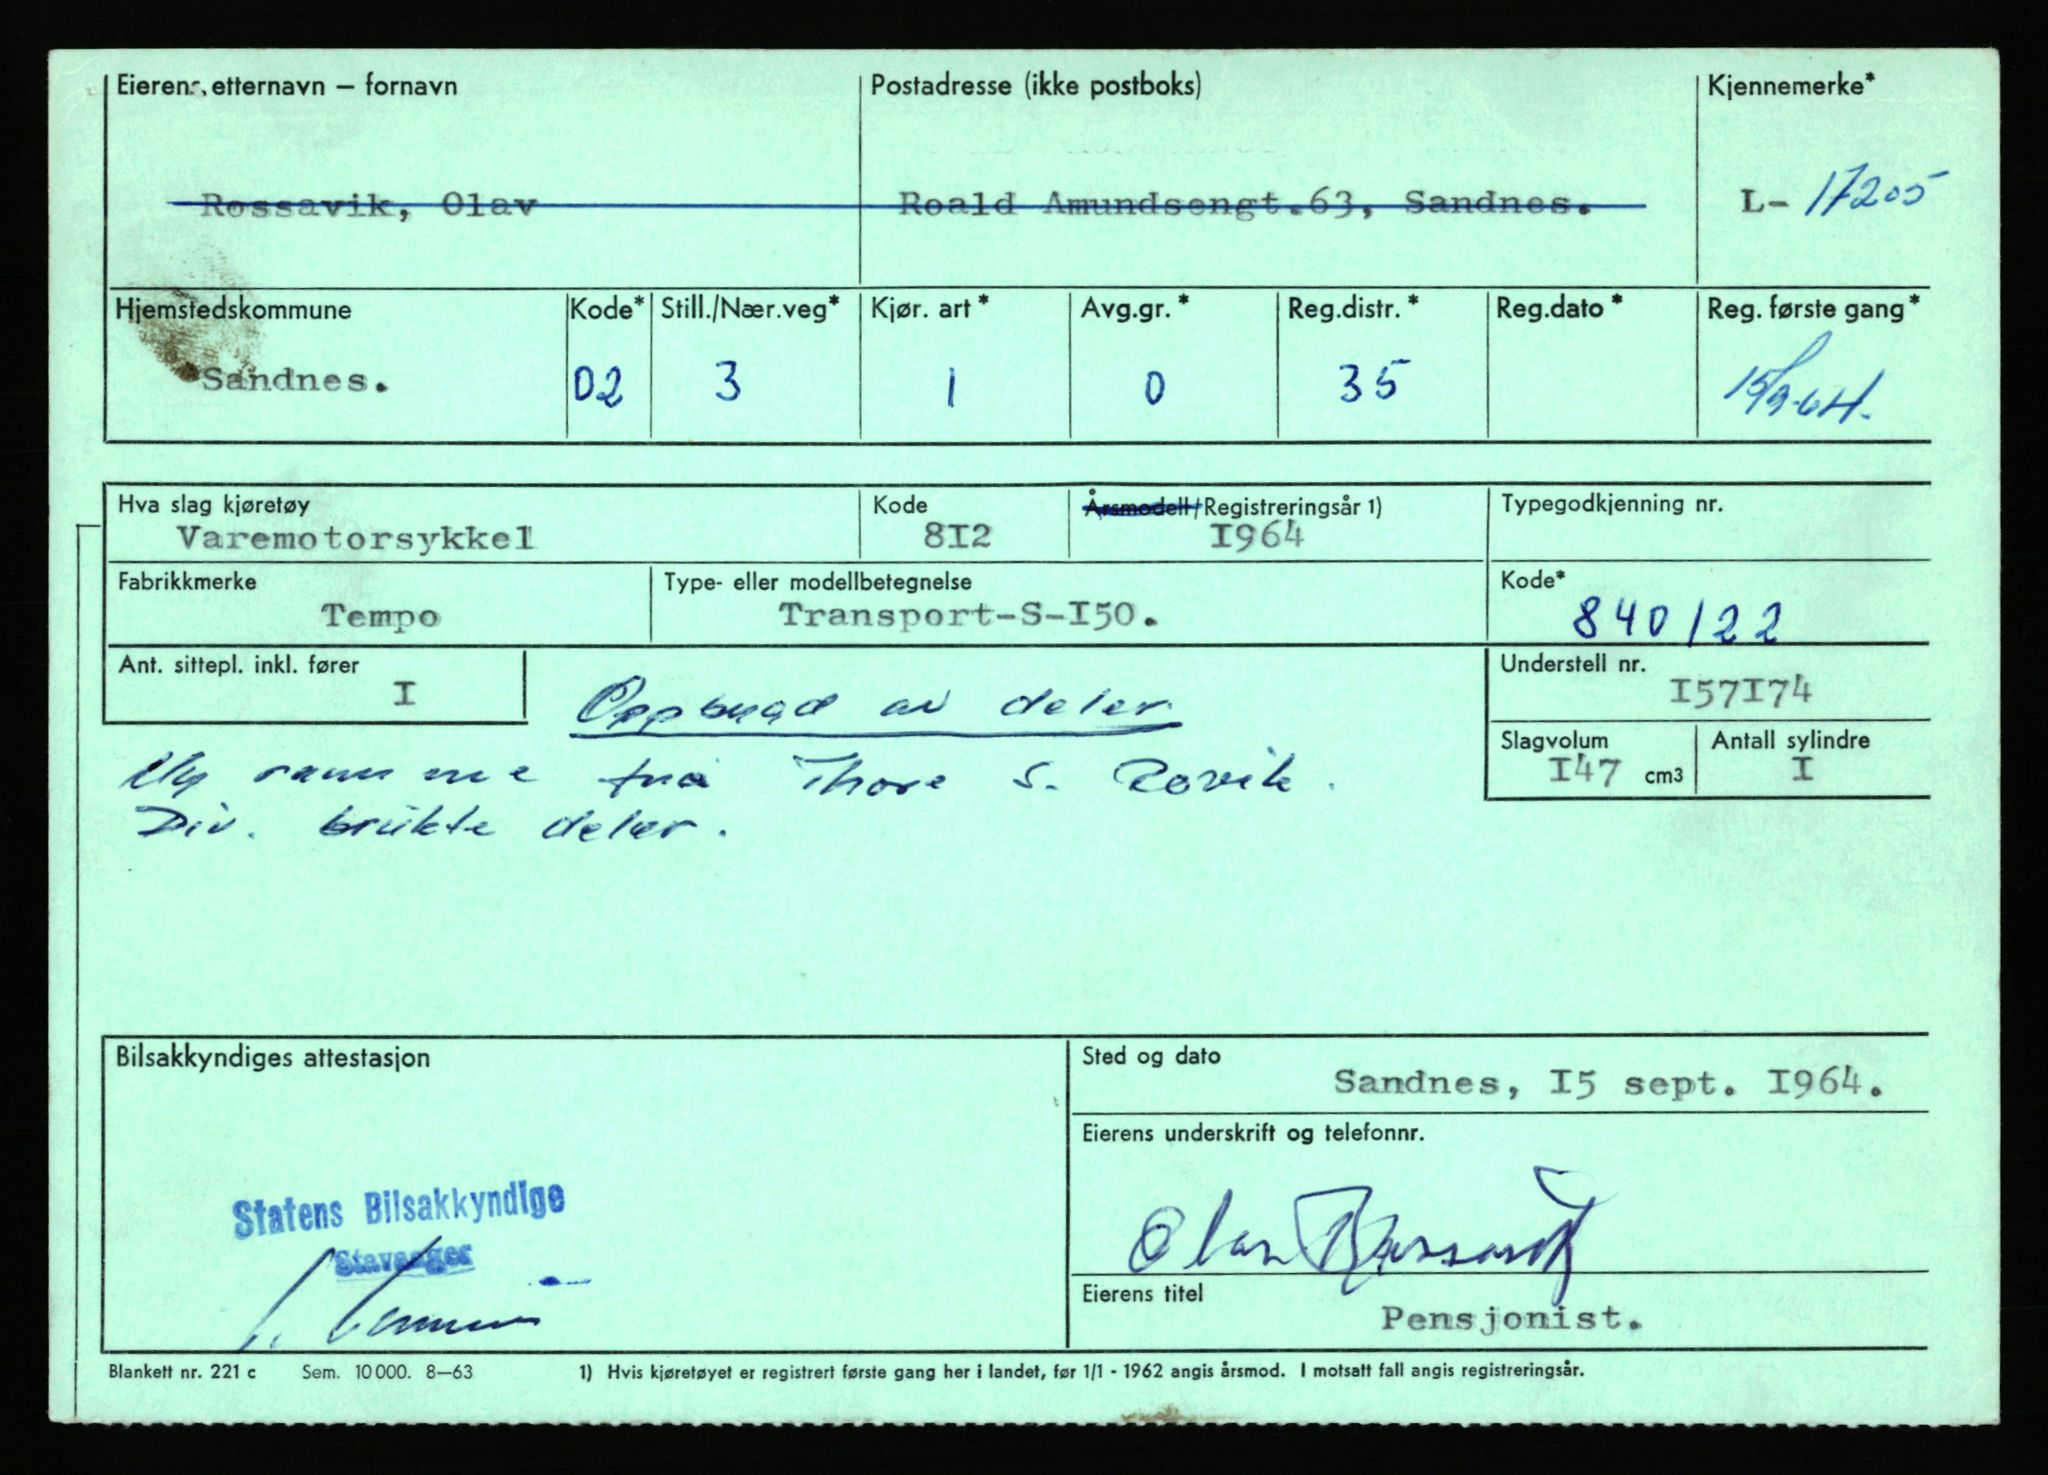 Eierens etternavn – fornavn Postadresse (ikke postboks) Kjennemerke*
Rossavik, Olav Roald Amundsengt.63, Sandnes. L- 17205
Hjemstedskommune Kode* Still./Nær.veg* Kjør. art* Avg.gr.* Reg.distr.* Reg.dato* Reg. første gang*
Sandnes. 02 3 1 0 35 15/9-64.
Hva slag kjøretøy Kode Årsmodell/Registreringsår 1) Typegodkjenning nr.
Varemotorsykkel 8I2 I964
Fabrikkmerke Type- eller modellbetegnelse Kode*
Tempo Transport-S-I50. 840122
Ant. sittepl. inkl. fører Understell nr.
I Oppbygd av deler. I57I74
Ny ramme fra Thore S. Røvik. Slagvolum Antall sylindre
I47 cm3 I
Div. brukte deler.
Bilsakkyndiges attestasjon Sted og dato
Sandnes, I5 sept. I964.
Eierens underskrift og telefonnr.
Statens Bilsakkyndige
Stavanger
Olav Rossavik
Eierens titel
Pensjonist.
Blankett nr. 221 c Sem. 10 000. 8–63 1) Hvis kjøretøyet er registrert første gang her i landet, før 1/1 - 1962 angis årsmod. I motsatt fall angis registreringsår.